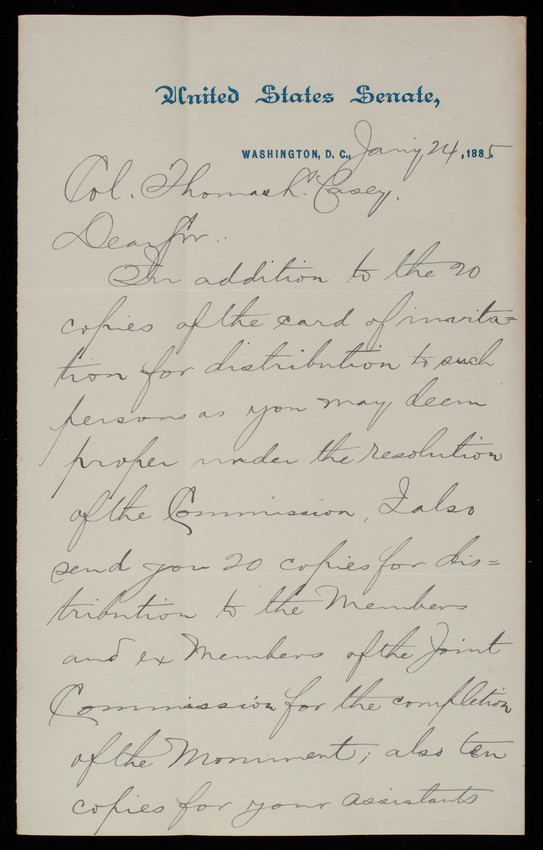 United States Senate,
WASHINGTON, D. C., Jany 24, 1885.
Col. Thomas L. Casey.
Dear Sir.
In addition to the 20
copies of the card of invita=
tion for distribution to such
persons as you may deem
proper under the resolution
of the Commission, I also
send you 20 copies for dis=
tribution to the Members
and ex Members of the Joint
Commission for the completion
of the Monument; also ten
copies for your assistants